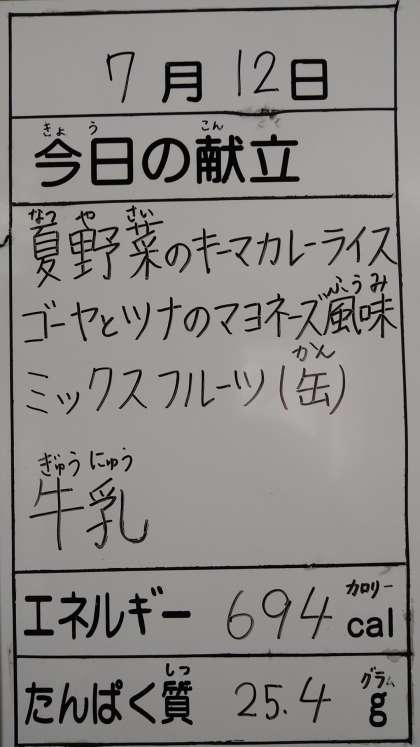 7月12日
きょう こん
今日の献立
なつ や さい
夏野菜のキーマカレーライス
ふうみ
ゴーヤとツナのマヨネーズ風味
かん
ミックスフルーツ(缶)
ぎゅうにゅう
牛乳
カロリー
エネルギー 694 cal
しつ グラム
たんぱく質 25.4 g